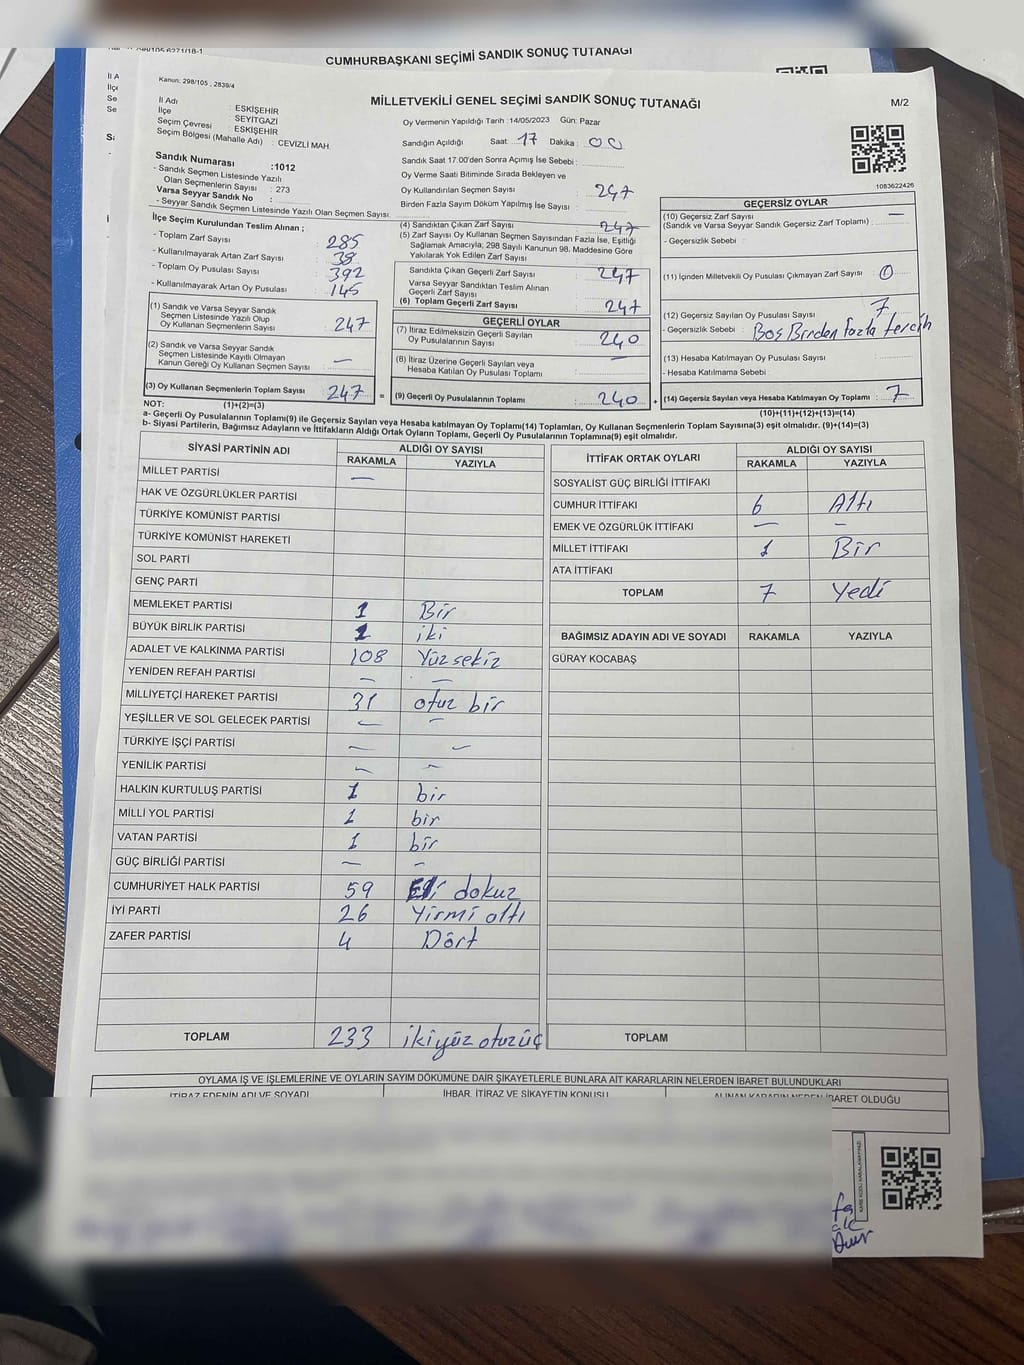 CUMHURBAŞKANI SEÇİMİ SANDIK SONUÇ TUTANAĞI
Kanun: 298/105 , 2839/4
MİLLETVEKİLİ GENEL SEÇİMİ SANDIK SONUÇ TUTANAĞI
M/2
İl Adı : ESKİŞEHİR
İlçe : SEYİTGAZİ
Seçim Çevresi : ESKİŞEHİR
Seçim Bölgesi (Mahalle Adı) : CEVİZLİ MAH.
Sandık Numarası :1012
- Sandık Seçmen Listesinde Yazılı
Olan Seçmenlerin Sayısı : 273
Varsa Seyyar Sandık No :
- Seyyar Sandık Seçmen Listesinde Yazılı Olan Seçmen Sayısı:
Oy Vermenin Yapıldığı Tarih :14/05/2023 Gün: Pazar
Sandığın Açıldığı Saat: 17 Dakika : 00
Sandık Saat 17:00'den Sonra Açımış İse Sebebi :
Oy Verme Saati Bitiminde Sırada Bekleyen ve
Oy Kullandırılan Seçmen Sayısı : 247
Birden Fazla Sayım Döküm Yapılmış İse Sayısı :
1083622426
İlçe Seçim Kurulundan Teslim Alınan ;
- Toplam Zarf Sayısı : 285
- Kullanılmayarak Artan Zarf Sayısı : 38
- Toplam Oy Pusulası Sayısı : 392
- Kullanılmayarak Artan Oy Pusulası : 145
(1) Sandık ve Varsa Seyyar Sandık
Seçmen Listesinde Yazılı Olup
Oy Kullanan Seçmenlerin Sayısı : 247
(2) Sandık ve Varsa Seyyar Sandık
Seçmen Listesinde Kayıtlı Olmayan
Kanun Gereği Oy Kullanan Seçmen Sayısı : —
(3) Oy Kullanan Seçmenlerin Toplam Sayısı : 247 =
(4) Sandıktan Çıkan Zarf Sayısı : 247
(5) Zarf Sayısı Oy Kullanan Seçmen Sayısından Fazla İse, Eşitliği
Sağlamak Amacıyla; 298 Sayılı Kanunun 98. Maddesine Göre
Yakılarak Yok Edilen Zarf Sayısı :
Sandıkta Çıkan Geçerli Zarf Sayısı : 247
Varsa Seyyar Sandıktan Teslim Alınan
Geçerli Zarf Sayısı :
(6) Toplam Geçerli Zarf Sayısı : 247
GEÇERLİ OYLAR
(7) İtiraz Edilmeksizin Geçerli Sayılan
Oy Pusulalarının Sayısı : 240
(8) İtiraz Üzerine Geçerli Sayılan veya
Hesaba Katılan Oy Pusulası Toplamı : —
(9) Geçerli Oy Pusulalarının Toplamı : 240 +
GEÇERSİZ OYLAR
(10) Geçersiz Zarf Sayısı : —
(Sandık ve Varsa Seyyar Sandık Geçersiz Zarf Toplamı)
- Geçersizlik Sebebi :
(11) İçinden Milletvekili Oy Pusulası Çıkmayan Zarf Sayısı :
(12) Geçersiz Sayılan Oy Pusulası Sayısı : 7
- Geçersizlik Sebebi : Boş Birden fazla tercih
(13) Hesaba Katılmayan Oy Pusulası Sayısı :
- Hesaba Katılmama Sebebi :
(14) Geçersiz Sayılan veya Hesaba Katılmayan Oy Toplamı : 7
NOT: (1)+(2)=(3) (10)+(11)+(12)+(13)=(14)
a- Geçerli Oy Pusulalarının Toplamı(9) ile Geçersiz Sayılan veya Hesaba katılmayan Oy Toplamı(14) Toplamları, Oy Kullanan Seçmenlerin Toplam Sayısına(3) eşit olmalıdır. (9)+(14)=(3)
b- Siyasi Partilerin, Bağımsız Adayların ve İttifakların Aldığı Ortak Oyların Toplamı, Geçerli Oy Pusulalarının Toplamına(9) eşit olmalıdır.
SİYASİ PARTİNİN ADI ALDIĞI OY SAYISI
RAKAMLA YAZIYLA
MİLLET PARTİSİ —
HAK VE ÖZGÜRLÜKLER PARTİSİ
TÜRKİYE KOMÜNİST PARTİSİ
TÜRKİYE KOMÜNİST HAREKETİ
SOL PARTİ
GENÇ PARTİ
MEMLEKET PARTİSİ 1 Bir
BÜYÜK BİRLİK PARTİSİ iki
ADALET VE KALKINMA PARTİSİ 108 Yüz sekiz
YENİDEN REFAH PARTİSİ — —
MİLLİYETÇİ HAREKET PARTİSİ 31 otuz bir
YEŞİLLER VE SOL GELECEK PARTİSİ — —
TÜRKİYE İŞÇİ PARTİSİ — —
YENİLİK PARTİSİ — —
HALKIN KURTULUŞ PARTİSİ 1 bir
MİLLİ YOL PARTİSİ 1 bir
VATAN PARTİSİ 1 bir
GÜÇ BİRLİĞİ PARTİSİ — —
CUMHURİYET HALK PARTİSİ 59 Elli dokuz
İYİ PARTİ 26 Yirmi altı
ZAFER PARTİSİ 4 Dört
TOPLAM 233 ikiyüz otuzüç
İTTİFAK ORTAK OYLARI ALDIĞI OY SAYISI
RAKAMLA YAZIYLA
SOSYALİST GÜÇ BİRLİĞİ İTTİFAKI
CUMHUR İTTİFAKI 6 Altı
EMEK VE ÖZGÜRLÜK İTTİFAKI — —
MİLLET İTTİFAKI 1 Bir
ATA İTTİFAKI
TOPLAM 7 Yedi
BAĞIMSIZ ADAYIN ADI VE SOYADI RAKAMLA YAZIYLA
GÜRAY KOCABAŞ
TOPLAM
OYLAMA İŞ VE İŞLEMLERİNE VE OYLARIN SAYIM DÖKÜMÜNE DAİR ŞİKAYETLERLE BUNLARA AİT KARARLARIN NELERDEN İBARET BULUNDUKLARI
İTİRAZ EDENİN ADI VE SOYADI İHBAR, İTİRAZ VE ŞİKAYETİN KONUSU ALINAN KARARIN NEDEN İBARET OLDUĞU